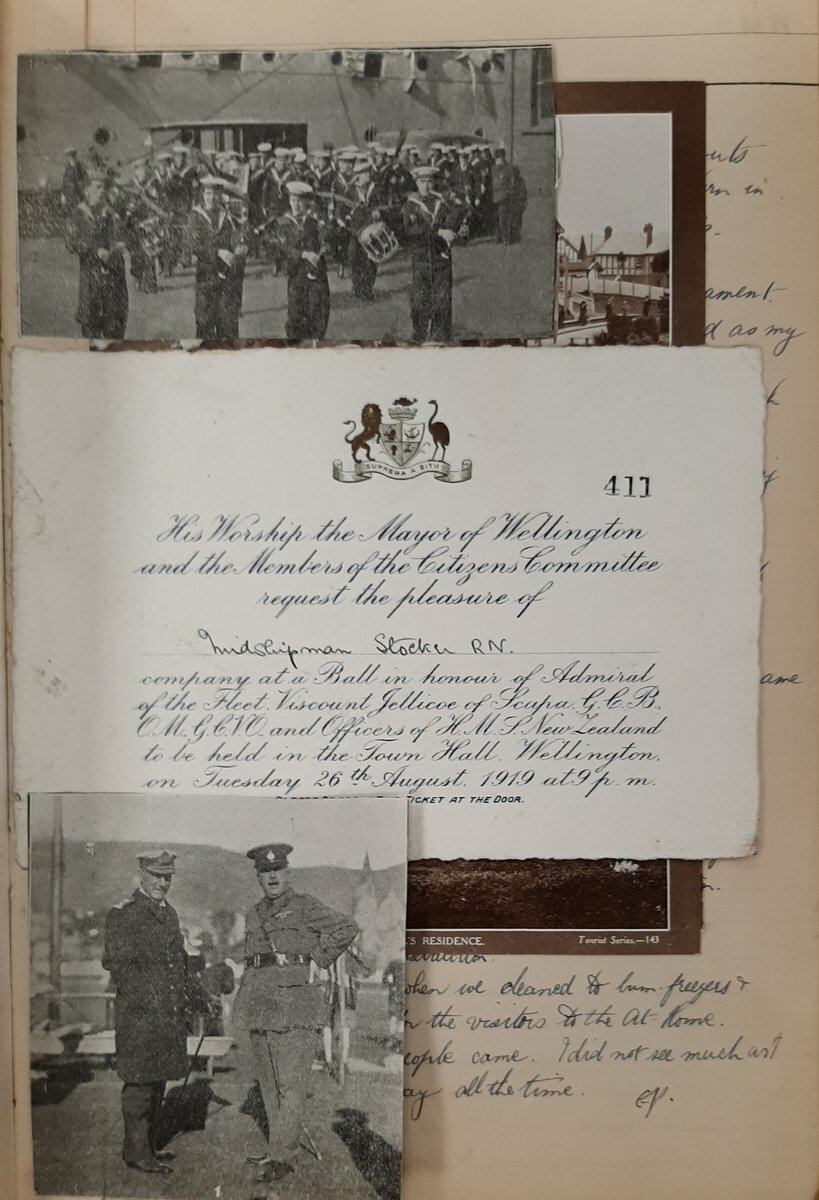 uts
in
ament
d as my
SUPREMA A SITU
411
His Worship the Mayor of Wellington
and the Members of the Citizens Committee
request the pleasure of
Midshipman Stocker RN.
company at a Ball in honour of Admiral
of the Fleet, Viscount Jellicoe of Scapa, G.C.B.,
O.M., G.C.V.O. and Officers of H.M.S. New Zealand
ame
to be held in the Town Hall, Wellington,
on Tuesday 26th August, 1919 at 9 p.m.
TICKET AT THE DOOR.
'S RESIDENCE.
Tourist Series.—143
when we cleaned to bum-freezers &
the visitors to the At Home.
eople came. I did not see much as I
ay all the time.